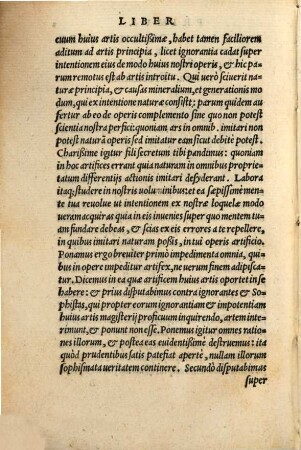 LIBER
euum huius artis occultißimæ, habet tamen faciliorem
aditum ad artis principia, licet ignorantia cadat super
intentionem eius de modo huius nostri operis, & hic pa-
rum remotus est ab artis introitu. Qui uerò sciuerit na-
turæ principia, & causas mineralium, et generationis mo
dum, qui ex intentione naturæ consistit; parum quidem au
fertur ab eo de operis complemento sine quo non potest
scientia nostra perfici: quoniam ars in omnib. imitari non
potest naturã operis sed imitatur eam sicut debitè potest.
Charißime igitur fili secretum tibi pandimus: quoniam
in hoc artifices errant quia naturam in omnibus proprie-
tatum differentijs actionis imitari desyderant. Labora
itaq; studere in nostris uoluminibus: et ea sæpißimè men-
te tua reuolue ut intentionem ex nostræ loquelæ modo
ueram acquiras quia in eis inuenies super quo mentem tu-
am fundare debeas, & scias ex eis errores à te repellere,
in quibus imitari naturam poßis, in tui operis artificio.
Ponamus ergo breuiter primò impedimenta omnia, qui-
bus in opere impeditur artifex, ne uerum finem adipisca-
tur. Dicemus in ea quæ artificem huius artis oportet in se
habere: & prius disputabimus contra ignorantes & So-
phistas, qui propter eorum ignorantiam & impotentiam
huius artis magisterij proficuum inquirendo, artem inter-
imunt, & ponunt non esse. Ponemus igitur omnes ratio-
nes illorum, & postea eas euidentißimè destruemus: ita
quòd prudentibus satis patefiat apertè, nullam illorum
sophismata ueritatem continere. Secundò disputabimas
super